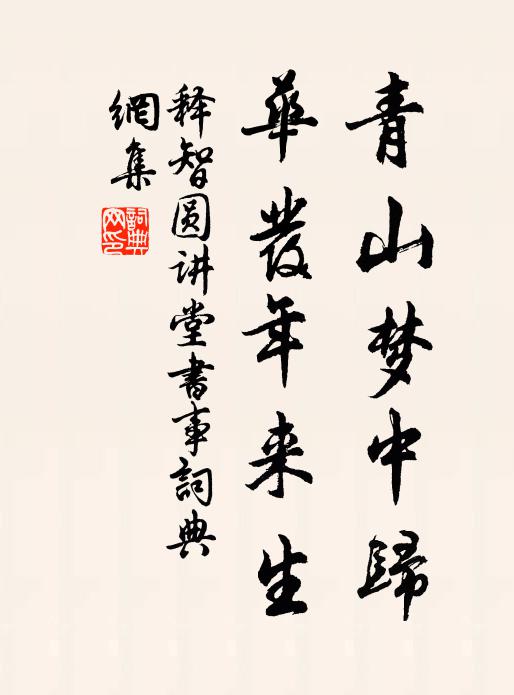 青山梦中歸
華发年来生
释智圆讲堂書事詞典
網集
詞典網印